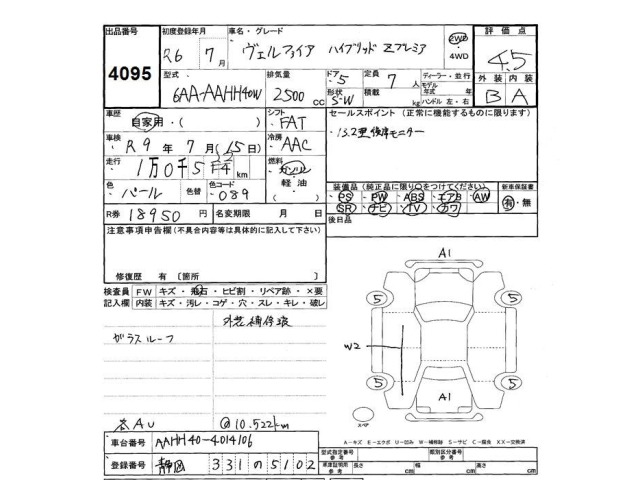 出品番号
4095
初度登録年月
R6年 7月
車名・グレード
ヴェルファイア ハイブリッド Zプレミア
2WD
4WD
評価点
4.5
型式
6AA-AAHH40W
排気量
2500 cc
ドア 5
形状 S-W
定員 7人
積載 kg
ディーラー・並行
モデル年式 年
ハンドル 左・右
外装 内装
B A
車歴
自家用・( )
シフト
FAT
セールスポイント (正常に機能するものに限ります)
・13.2型後席モニター
車検
R9年 7月(15日)
冷房
AAC
走行
1万0千5 km
燃料
ガソリン
軽油・
色
パール
色替
色コード
・089
装備品(純正品に限り○をつけてください)
PS・PW・ABS・エアB・AW
SR・ナビ・TV・カワ
新車保証書
有・無
R券 18950円
名変期限 月 日
後日品
注意事項申告欄(不具合内容等は具体的に記入して下さい)
修復歴 有 〔箇所 〕
検査員 FW キズ・飛石・ヒビ割・リペア跡・×要
記入欄 内装 キズ・汚レ・コゲ・穴・スレ・キレ・破レ
外装補修痕
ガラスルーフ
A1
5 5
W2
5 5
A1
スペア
各AU
@10.522km
A-キズ E-エクボ U-凹み W-補修跡 S-サビ C-腐食 XX-交換済
車台番号
AAHH40-4014106
登録番号
静岡 331 の 5102
型式指定番号
参考
類別区分番号
参考
車庫証明用
参考
長さ cm
幅 cm
高さ cm